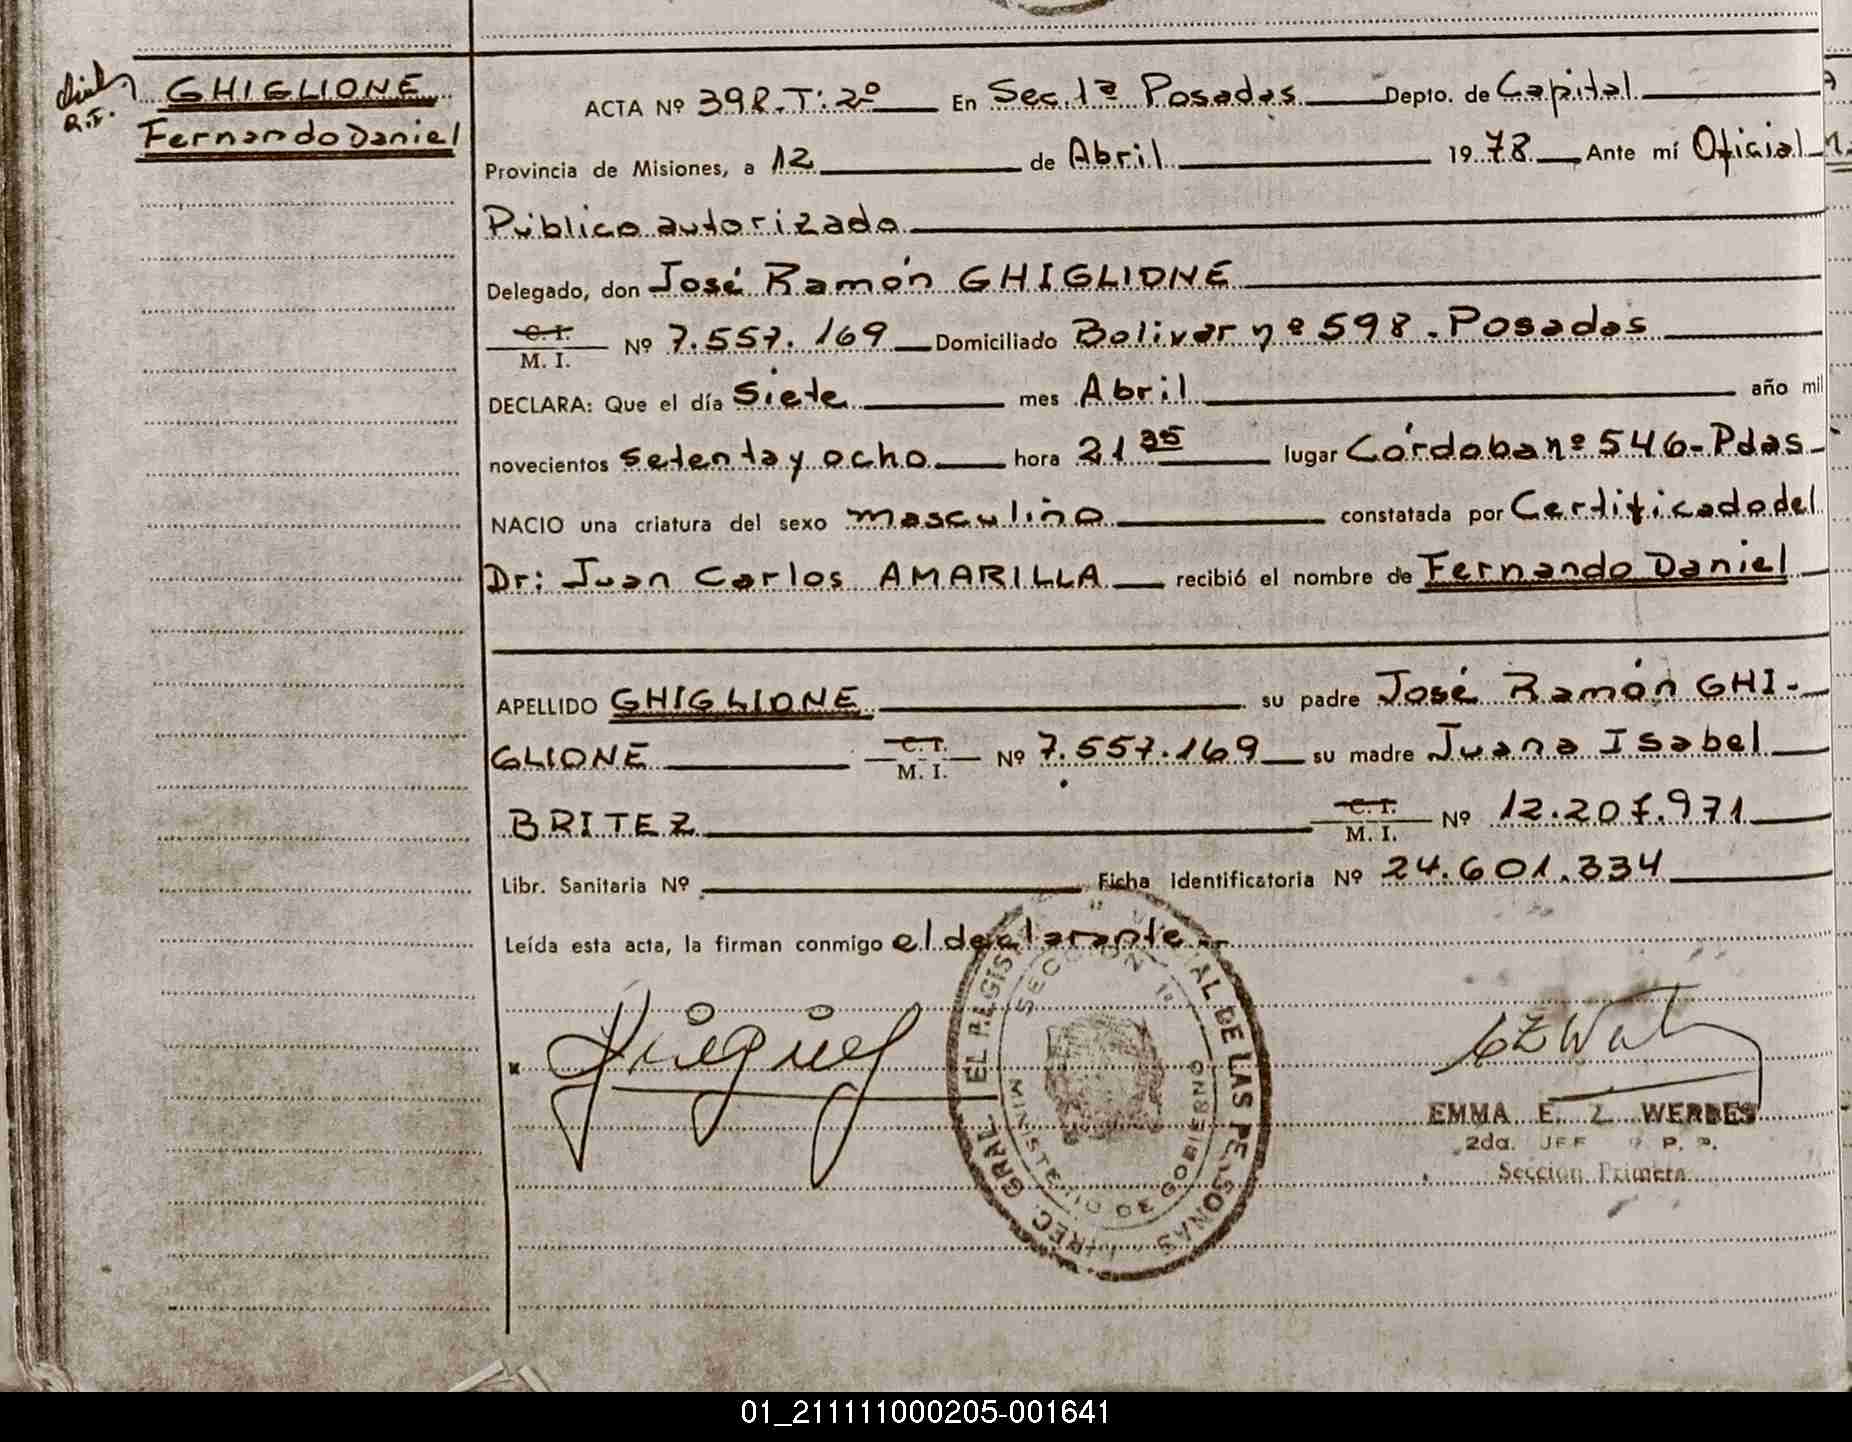 GHIGLIONE
Fernando Daniel
ACTA Nº 398.T: 2º En Sec. 1ª Posadas Depto. de Capital
Provincia de Misiones, a 12 de Abril 1978 Ante mí Oficial
Público autorizado
Delegado, don José Ramón GHIGLIONE
C. I.
M. I. Nº 7.557.169 Domiciliado Bolivar nº 598. Posadas
DECLARA: Que el día Siete mes Abril año mil
novecientos setenta y ocho hora 21 35 lugar Córdoba nº 546-Pdas-
NACIO una criatura del sexo masculino constatada por Certificado del
Dr: Juan Carlos AMARILLA recibió el nombre de Fernando Daniel
APELLIDO GHIGLIONE su padre José Ramón GHI-
GLIONE C. I. M. I. Nº 7.557.169 su madre Juana Isabel
BRITEZ C. I. M. I. Nº 12.207.971
Libr. Sanitaria Nº Ficha Identificatoria Nº 24.601.334
Leída esta acta, la firman conmigo el declarante.-
SECCION 1ª
MINISTERIO DE GOBIERNO
EMMA E. Z. WERBES
2da. JEF
Sección Primera
01_211111000205-001641